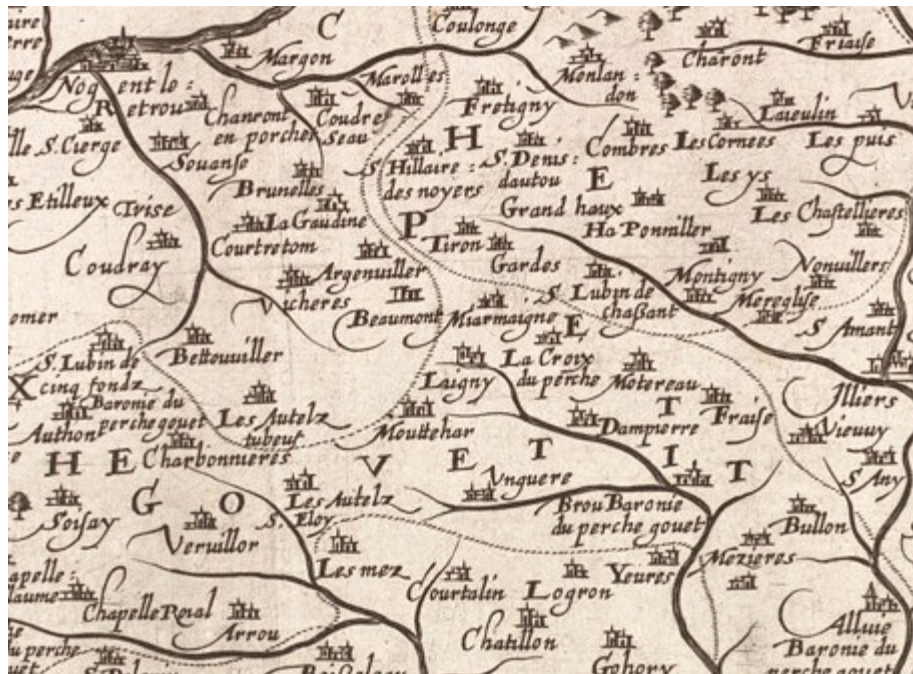 C
Coulonge
Margon
Charont
Friaise
Nogent le:
Retrou
Marolles
Monlan:
don
Chanront
en porcher
Coudre
Seau
Fretigny
Laeulin
lle S. Cierge
Souanse
H
S. Hillaire:
des noyers
S. Denis:
dautou
Combres
Les Cornees
Les puis
Brunelles
E
Les ys
s Etilleux
Trise
La Gaudine
P
Grand haux
Les Chastellieres
Courtretom
Tiron
Ha Ponniller
Coudray
Argenuiller
Gardes
Montigny
Nonuillers
Vicheres
S. Lubin de
chaßant
Mereglise
emer
Beaumont
Miarmaigne
S. Amant
E
S. Lubin de
cinq fondz
Bettouuiller
La Croix
du perche
X
Laigny
Motereau
Illiers
Baronie du
perche gouet
Les Autelz
tubeuf
T
Fraise
Authon
Mouttehar
Dampierre
Vieuuy
HE
Charbonnieres
V
E
T
I
T
Vnguere
S. Any
GO
Les Autelz
S. Eloy
Brou Baronie
du perche gouet
Soisay
Bullon
Veruillor
Mezieres
Les mez
Yeures
apelle:
laume
Courtalin
Logron
Chapelle Roial
Arrou
Chatillon
Alluie
Baronie du
perche gouet
u perche
uet
Gohory